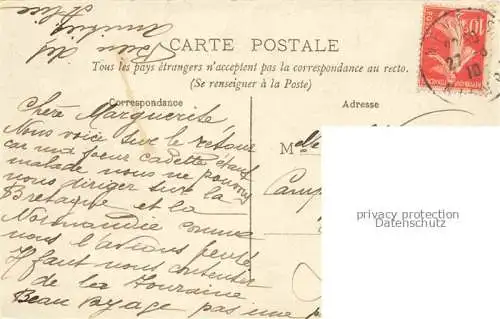 Bien des
amitiés
Alice
CARTE POSTALE
Tous les pays étrangers n'acceptent pas la correspondance au recto.
(Se renseigner à la Poste)
Correspondance
Adresse
Chère Marguerite
Nous voici sur le retour
car ma soeur cadette étant
malade nous ne pouvons
nous diriger sur la
Bretagne et la
Normandie comme
nous l'avions pensé
Il faut nous contenter
de la Touraine
Beau voyage pas une
Camp
privacy protection
Datenschutz
10